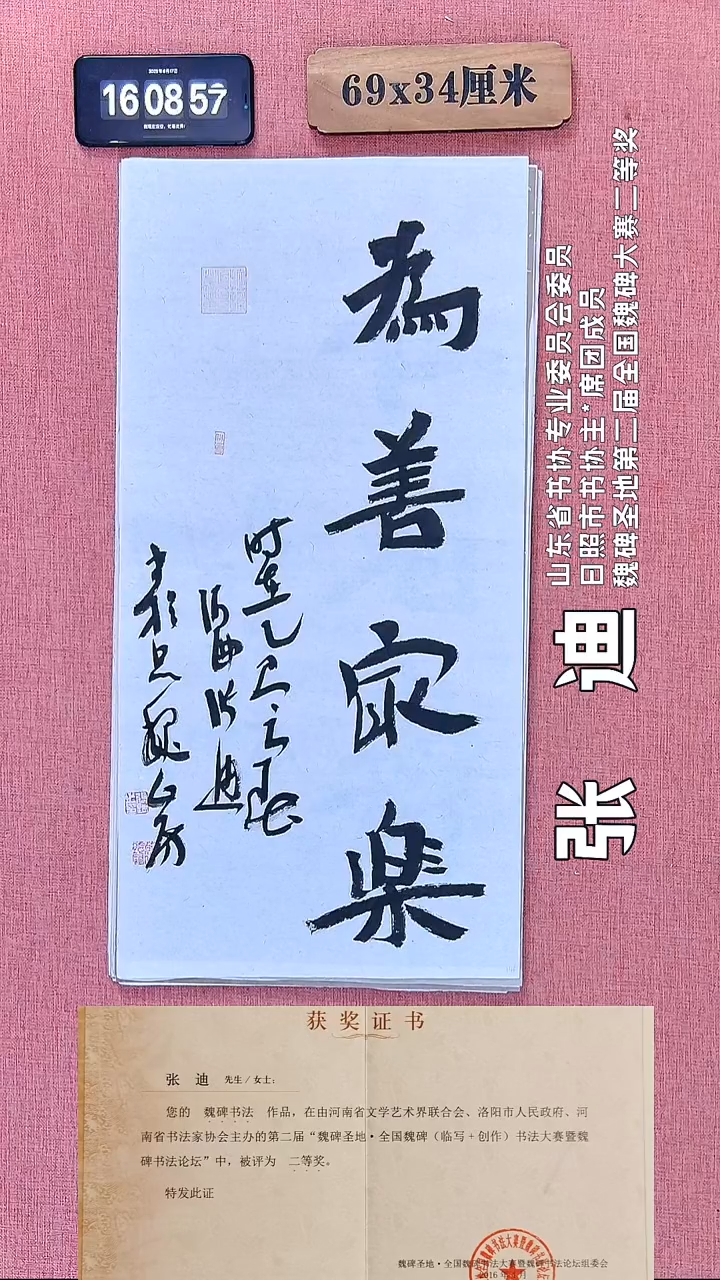 2025年6月17日
16 08 57
69x34厘米
為善最樂
时在乙巳之夏
张迪
山东省书协专业委员会委员
日照市书协主*席团成员
魏碑圣地第二届全国魏碑大赛二等奖
张 迪
获奖证书
张 迪 先生/女士：
您的 魏碑书法 作品，在由河南省文学艺术界联合会、洛阳市人民政府、河
南省书法家协会主办的第二届“魏碑圣地·全国魏碑（临写+创作）书法大赛暨魏
碑书法论坛”中，被评为 二等奖。
特发此证
魏碑圣地·全国魏碑书法大赛暨魏碑书法论坛组委会